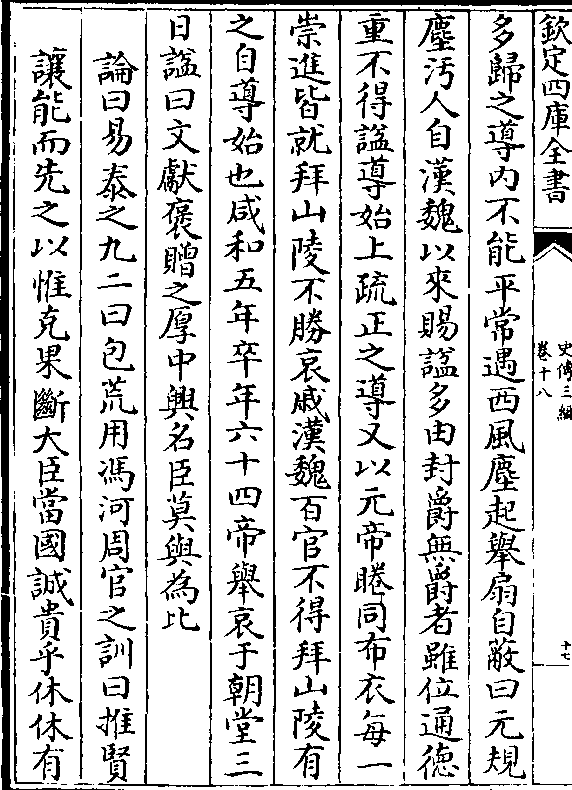 欽定四庫全書
史傳三編
卷十八
十七
多歸之導内不能平常遇西風塵起舉扇自蔽曰元規
塵汚人自漢魏以來賜諡多由封爵無爵者雖位通德
重不得諡導始上疏正之導又以元帝睠同布衣每一
崇進皆就拜山陵不勝哀戚漢魏百官不得拜山陵有
之自導始也咸和五年卒年六十四帝舉哀于朝堂三
日諡曰文獻褒贈之厚中興名臣莫與為比
論曰易泰之九二曰包荒用馮河周官之訓曰推賢
讓能而先之以惟克果斷大臣當國誠貴乎休休有